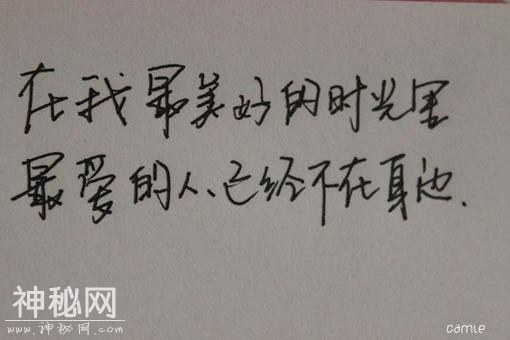 在我最美好的时光里
最爱的人、已经不在身边.
神秘网
www.神秘网.com
camle